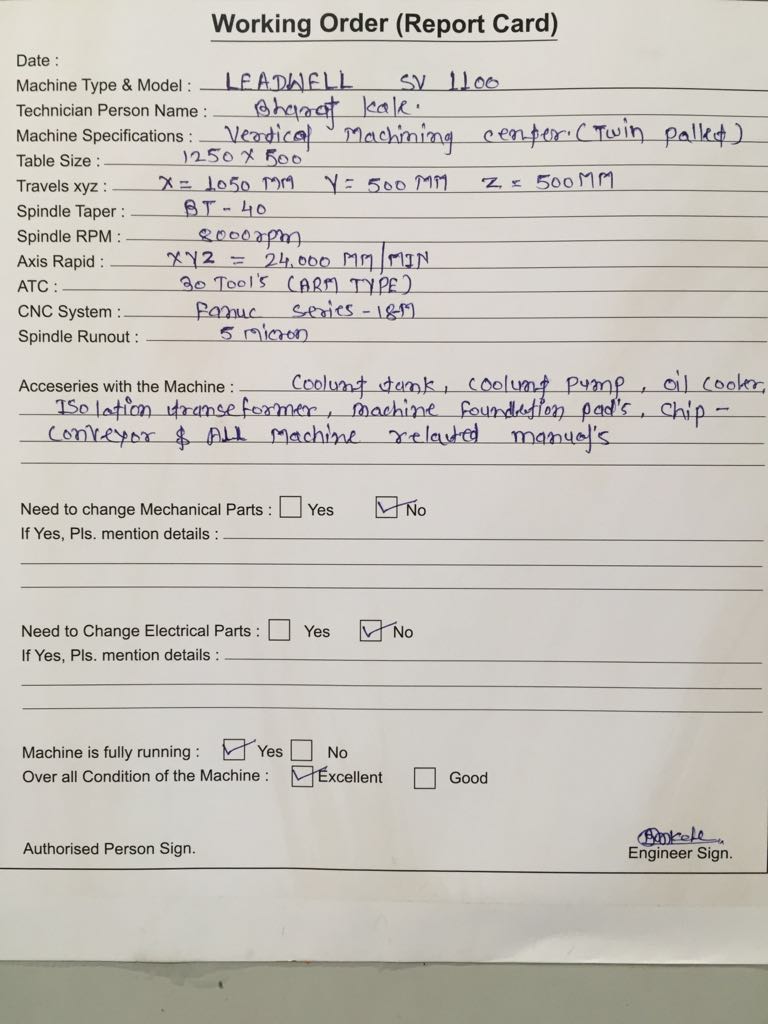 Working Order (Report Card)
Date :
Machine Type & Model : LEADWELL SV 1100
Technician Person Name : Bharat Kale.
Machine Specifications : Vertical Machining center. (Twin pallet)
Table Size : 1250 X 500
Travels xyz : X = 1050 MM Y = 500 MM Z = 500 MM
Spindle Taper : BT - 40
Spindle RPM : 8000rpm
Axis Rapid : XYZ = 24,000 MM/MIN
ATC : 30 Tool's (ARM TYPE)
CNC System : Fanuc series - 18M
Spindle Runout : 5 micron
Acceseries with the Machine : Coolunt tank, Coolunt pump, oil cooler,
Isolation transeformer, machine foundetion pad's, chip -
Conveyor & ALL Machine relauted manual's
Need to change Mechanical Parts : Yes No
If Yes, Pls. mention details :
Need to Change Electrical Parts : Yes No
If Yes, Pls. mention details :
Machine is fully running : Yes No
Over all Condition of the Machine : Excellent Good
Authorised Person Sign. Engineer Sign.